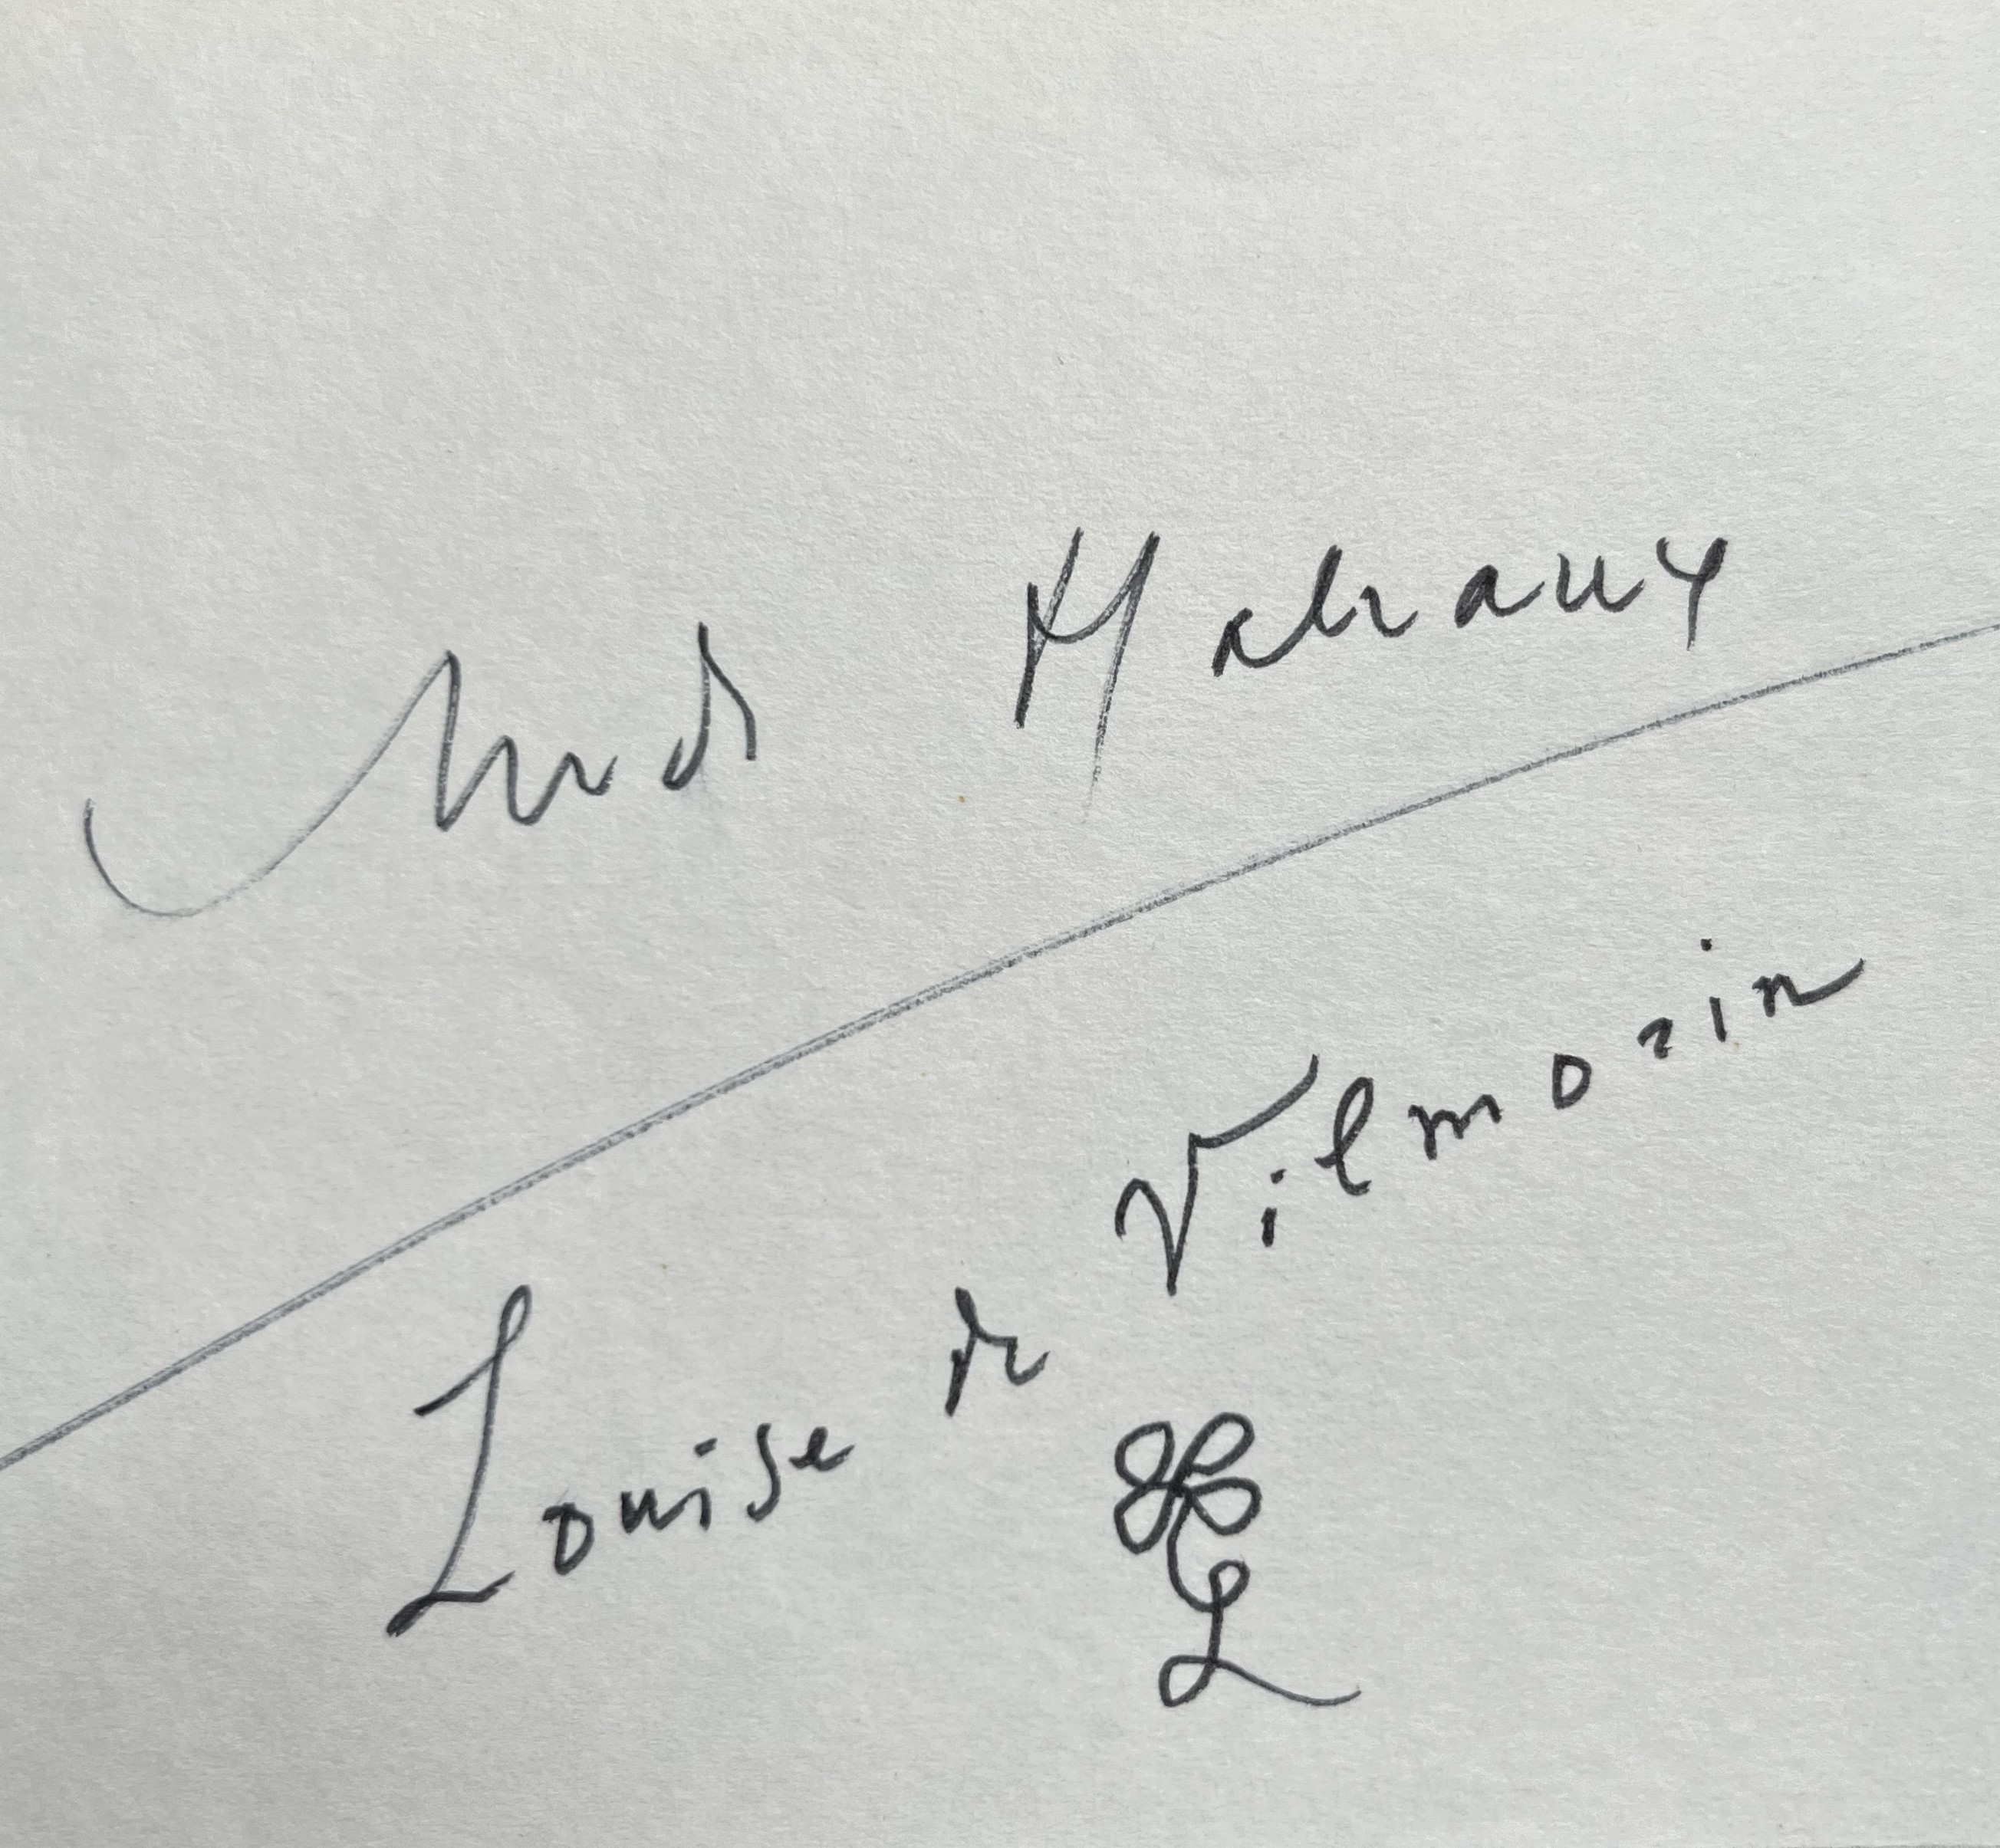 André Malraux
Louise de Vilmorin
L